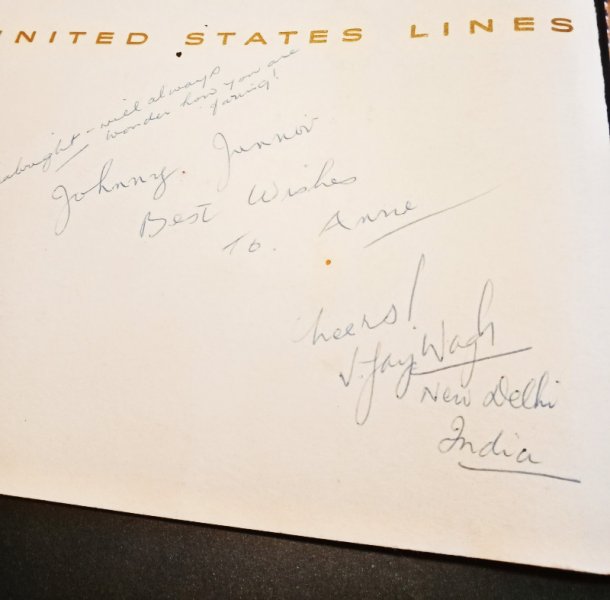 UNITED STATES LINES
- will always
wonder how you are
faring!
Johnny. Junnor
Best Wishes
To. Anne
Cheers!
V. Jay. Wagh
New Delhi
India